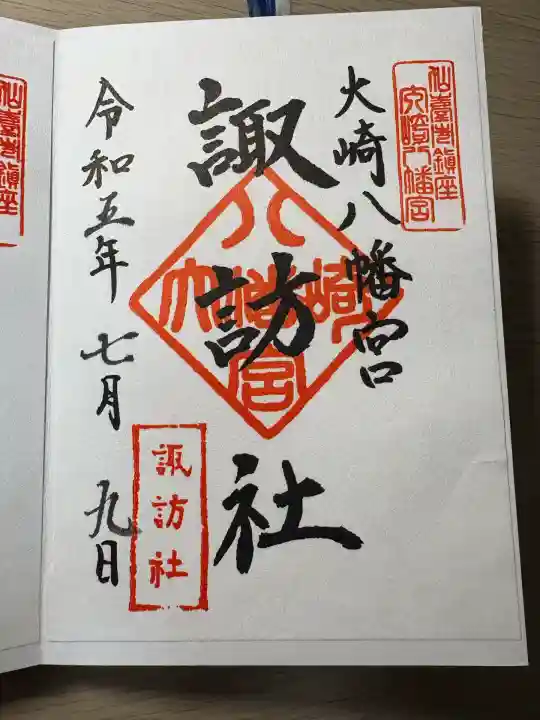 仙臺市鎮座
大崎八幡宮
大崎八幡宮
諏訪社
大崎八幡宮
諏訪社
令和五年七月九日
仙臺市鎮座